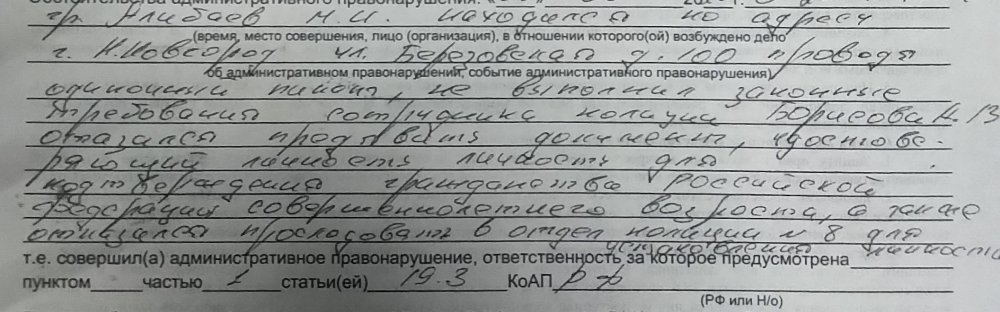 гр. Алибаев М.И. находился по адресу
(время, место совершения, лицо (организация), в отношении которого(ой) возбуждено дело
г. Н.Новгород ул. Березовская д. 100 проводя
об административном правонарушении, событие административного правонарушения)
одиночный пикет, не выполнил законные
требования сотрудника полиции Борисова К.В
отказался предъявить документ, удостове-
ряющий личность личность для
подтверждения гражданства Российской
Федерации совершеннолетнего возраста, а также
отказался проследовать в отдел полиции N 8 для
установления личности
т.е. совершил(а) административное правонарушение, ответственность за которое предусмотрена
пунктом частью 1 статьи(ей) 19.3 КоАП РФ
(РФ или Н/о)